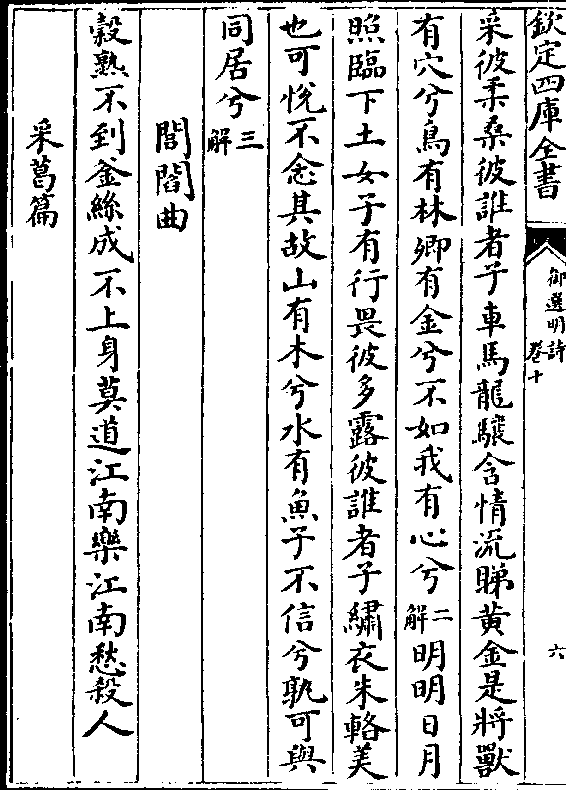 欽定四庫全書
御選明詩
卷十
六
采彼柔桑彼誰者子車馬龍驤含情流睇黃金是將獸
有穴兮鳥有林卿有金兮不如我有心兮二解明明日月
照臨下土女子有行畏彼多露彼誰者子繡衣朱輅美
也可悅不念其故山有木兮水有魚子不信兮孰可與
同居兮三解
閶閻曲
穀熟不到釜絲成不上身莫道江南樂江南愁殺人
采葛篇